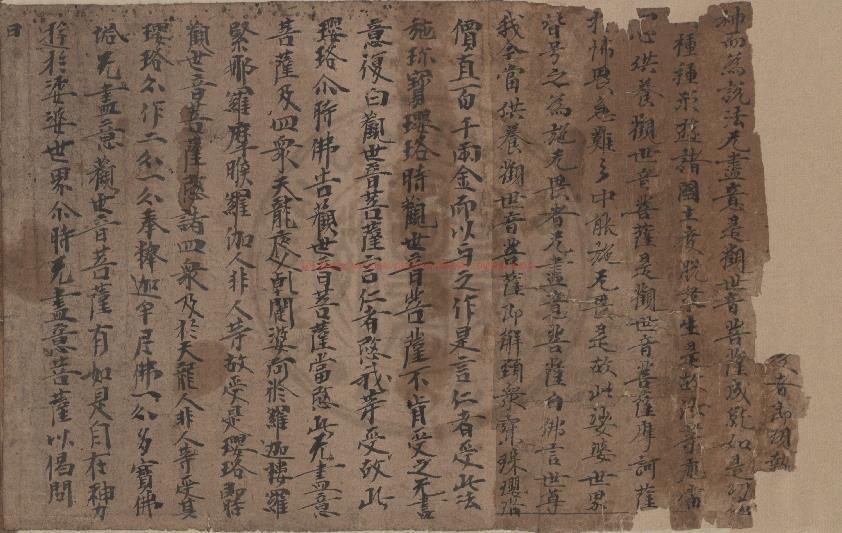 即現執
神而為說法无盡意是觀世音菩薩成就如是功
種種形遊諸國土度脫衆生是故汝等應當
一心供養觀世音菩薩是觀世音菩薩摩訶薩
於怖畏急難之中能施无畏是故此娑婆世界
皆号之為施无畏者无盡意菩薩白佛言世尊
我今當供養觀世音菩薩即解頸衆寶珠瓔珞
價直百千兩金而以与之作是言仁者受此法
施珎寶瓔珞時觀世音菩薩不肯受之无盡
意復白觀世音菩薩言仁者愍我等受故此
瓔珞尒時佛告觀世音菩薩當愍此无盡意
菩薩及四衆天龍夜叉乹闥婆阿脩羅迦樓羅
緊那羅摩睺羅伽人非人等故受是瓔珞即時
觀世音菩薩愍諸四衆及於天龍人非人等受其
瓔珞分作二分一分奉釋迦牟尼佛一分多寶佛
塔无盡意觀世音菩薩有如是自在神力
遊於娑婆世界尒時无盡意菩薩以偈問
曰